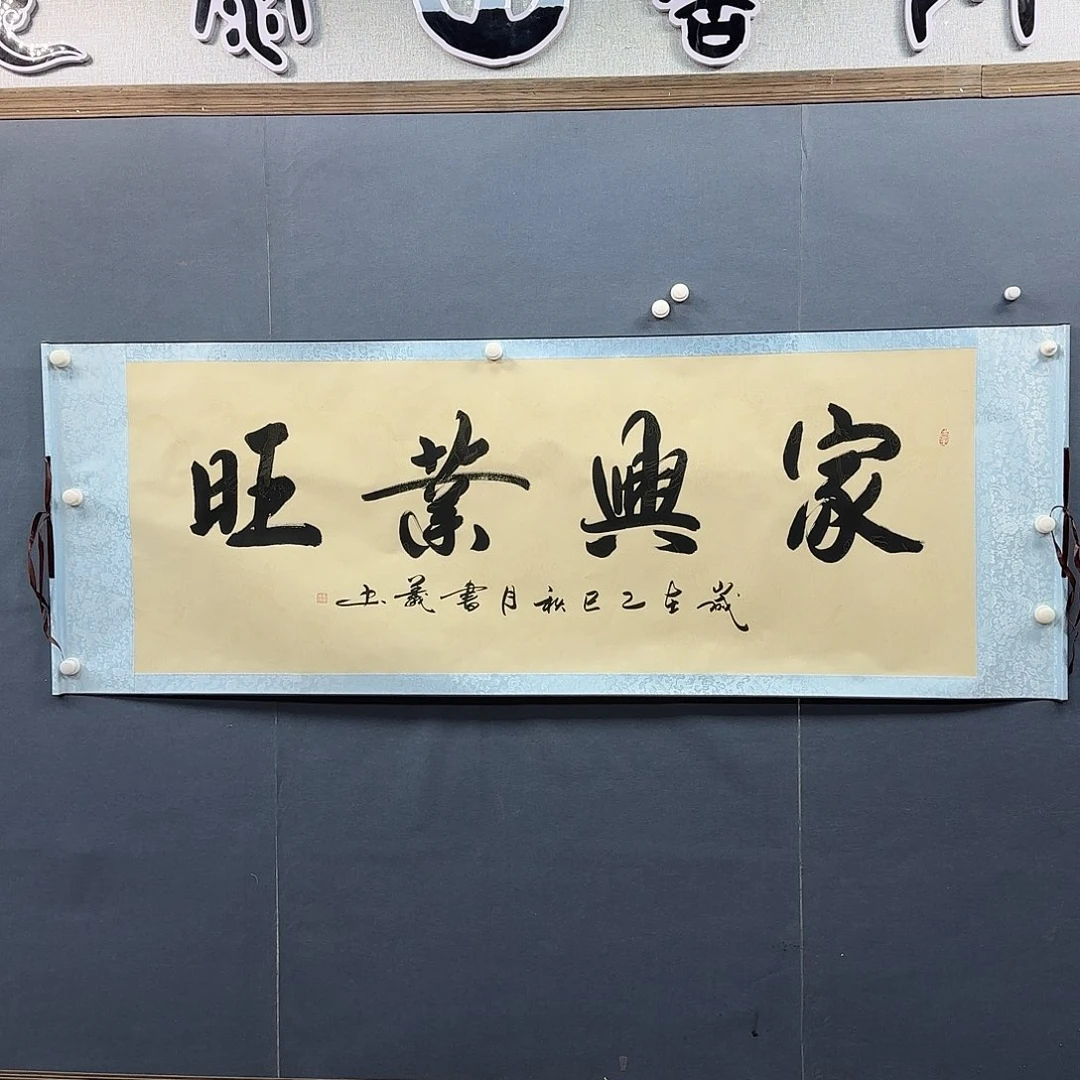 家興業旺
歲在乙巳秋月書義士